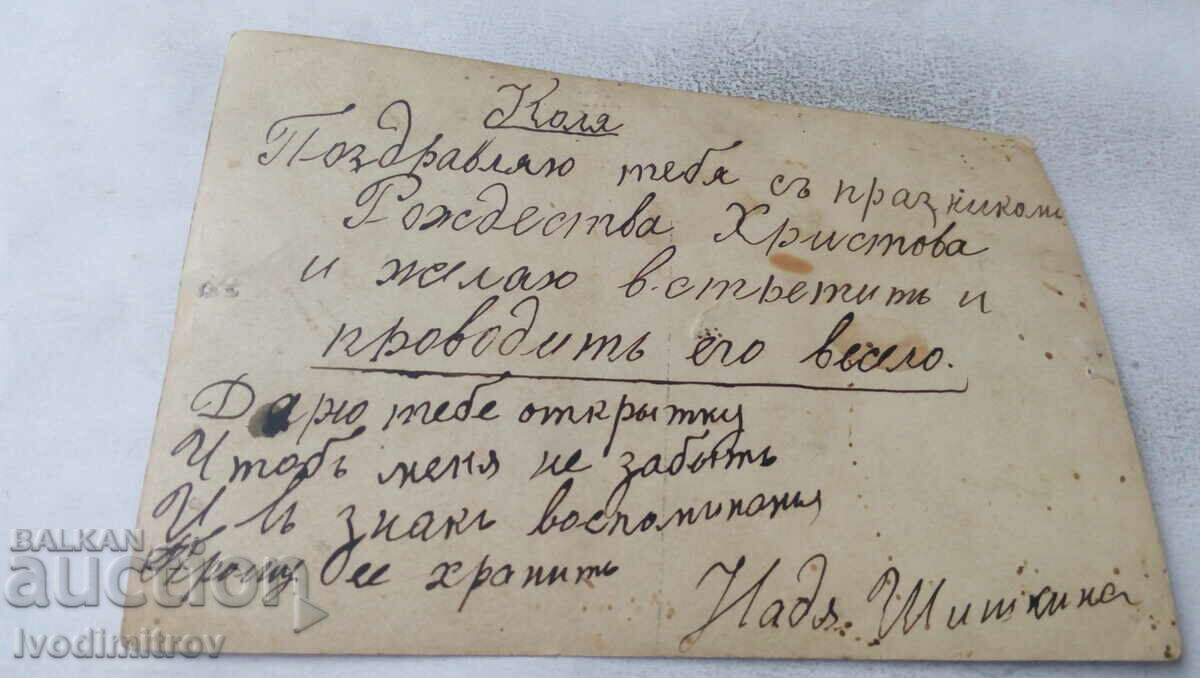 Коля
Поздравляю тебя съ празникомъ
Рождества Христова
и желаю встретить и
проводить его весело.
Дарю тебе открытку
Чтобъ меня не забыть
И въ знакъ воспоминанья
Прошу ее хранить
Надя Шишкина
BALKAN
auction
Ivodimitrov